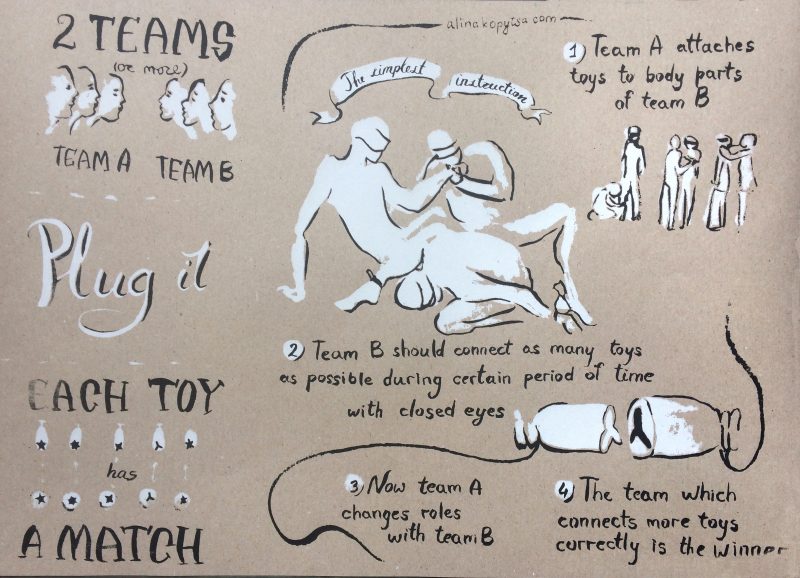 2 TEAMS
(or more)
TEAM A TEAM B
Plug it
EACH TOY
has
A MATCH
alinakopytsa.com
The simplest instruction
1) Team A attaches
toys to body parts
of team B
2 Team B should connect as many toys
as possible during certain period of time
with closed eyes
3) Now team A
changes roles
with team B
4) The team which
connects more toys
correctly is the winner